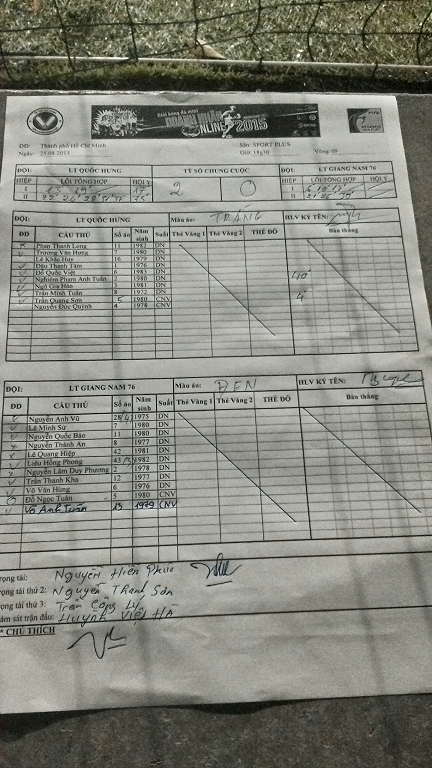 Giải bóng đá mini
DOANH NHÂN
ONLINE 2015
FIFA
DD: Thành phố Hồ Chí Minh Sân: SPORT PLUS
Ngày: 25.08.2015 Giờ: 18g30 Vòng:
ĐỘI: LT QUỐC HƯNG TỶ SỐ CHUNG CUỘC ĐỘI: LT GIANG NAM 76
HIỆP LỖI TỔNG HỢP HỘI Ý 2 0 HIỆP LỖI TỔNG HỢP HỘI Ý
I I
II II
ĐỘI: LT QUỐC HƯNG Màu áo: TRẮNG HLV KÝ TÊN:
ĐD CẦU THỦ Số áo Năm sinh Suất Thẻ Vàng 1 Thẻ Vàng 2 THẺ ĐỎ Bàn thắng
Phan Thanh Long 11 1982 DN
Trương Văn Hưng 7 1980 DN
Lê Khắc Huy 16 1979 DN
Đậu Thanh Tâm 1 1976 DN
Đỗ Quốc Việt 6 1983 DN
Nghiêm Phạm Anh Tuấn 2 1980 DN 40'
Ngô Gia Hào 3 1981 DN
Trần Minh Tuấn 8 1972 DN 4'
Trần Quang Sơn 5 1980 CNV
Nguyễn Đức Quỳnh 4 1978 CNV
ĐỘI: LT GIANG NAM 76 Màu áo: ĐEN HLV KÝ TÊN:
ĐD CẦU THỦ Số áo Năm sinh Suất Thẻ Vàng 1 Thẻ Vàng 2 THẺ ĐỎ Bàn thắng
Nguyễn Anh Vũ 28 1975 DN
Lê Minh Sứ 7 1980 DN
Nguyễn Quốc Bảo 11 1980 DN
Nguyễn Thành An 8 1977 DN
Lê Quang Hiệp 42 1981 DN
Liêu Hồng Phong 43 1982 DN
Nguyễn Lâm Duy Phương 2 1978 DN
Trần Thanh Kha 12 1977 DN
Võ Văn Hùng 6 1976 DN
Đỗ Ngọc Tuấn 5 1980 CNV
Võ Anh Tuấn 19 1979 CNV
rọng tài: Nguyễn Hiền Phúc
rọng tài thứ 2: Nguyễn Thanh Sơn
rọng tài thứ 3: Trần Công Lý
iám sát trận đấu: Huỳnh Việt Hà
* CHÚ THÍCH